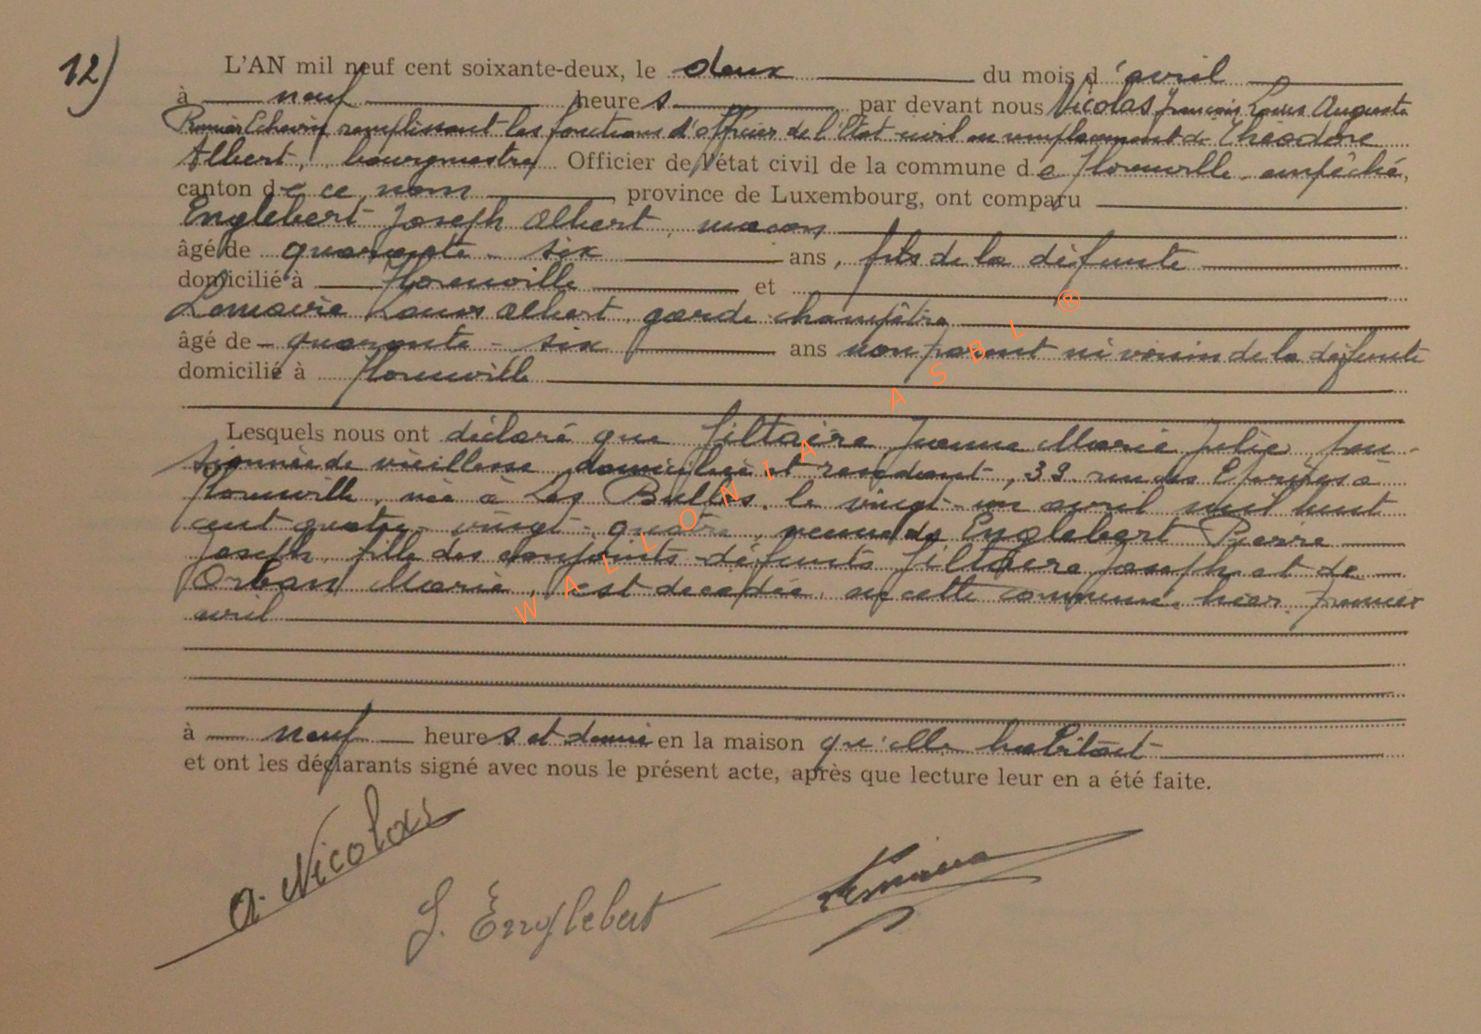 12)
L'AN mil neuf cent soixante-deux, le deux du mois d'avril
à neuf heures par devant nous Nicolas François Louis Auguste
Premier Echevin remplissant les fonctions d'officier de l'Etat civil en remplacement de Theodore
Albert, bourgmestre Officier de l'état civil de la commune de Florenville empêché,
canton de ce nom, province de Luxembourg, ont comparu
Englebert Joseph Albert, maçon
âgé de quarante-six ans, fils de la défunte
domicilié à Florenville et
Lemaire Louis Albert, garde champêtre
âgé de quarante-six ans non parent ni voisin de la défunte
domicilié à Florenville
Lesquels nous ont déclaré que Filtaire Jeanne Marie Julie, pen-
sionnée de vieillesse, domiciliée et résidant, 39 rue des Epinés à
Florenville, née à Les Bulles, le vingt-un avril mil huit
cent quatre-vingt-quatre, veuve de Englebert Pierre
Joseph, fille des conjoints défunts Filtaire Joseph et de
Orban Marie, est décédée, en cette commune, hier premier
avril
à neuf heures et demie en la maison qu'elle habitait
et ont les déclarants signé avec nous le présent acte, après que lecture leur en a été faite.
A. Nicolas
J. Englebert
WALLONIA ASBL ®